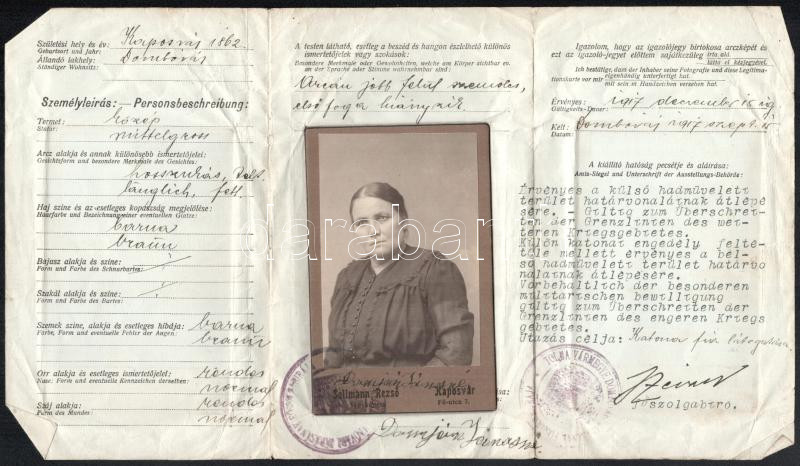 Születési hely és év: Kaposvár 1862
Geburtsort und Jahr:
Állandó lakhely: Dombóvár
Ständiger Wohnsitz:
Személyleírás: — Personsbeschreibung:
Termet: közép
Statur: mittelgross
Arcz alakja és annak különösebb ismertetőjelei:
Gesichtsform und besondere Merkmale des Gesichtes:
hosszukás, telt
länglich, fett
Haj színe és az esetleges kopaszság megjelölése:
Haarfarbe und Bezeichnung einer eventuellen Glatze:
barna
braun
Bajusz alakja és színe:
Form und Farbe des Schnurbartes:
Szakál alakja és színe:
Form und Farbe des Bartes:
Szemek színe, alakja és esetleges hibája: barna
Farbe, Form und eventuelle Fehler der Augen: braun
Orr alakja és esetleges ismertetőjelei: rendes
Nase: Form und eventuelle Kennzeichen derselben: normal
Száj alakja: rendes
Form des Mundes: normal
A testen látható, esetleg a beszéd és hangon észlelhető különös
ismertetőjelek vagy szokások:
Besondere Merkmale oder Gewohnheiten, welche am Körper sichtbar ev.
an der Sprache oder Stimme wahrnehmbar sind:
Arcán jobb felül szemölcs,
első foga hiányzik.
darabanth
Sellmann Rezső
Kaposvár
Fő-utca 7.
Igazolom, hogy az igazolójegy birtokosa arczképét és
ezt az igazoló-jegyet előttem sajátkezűleg írta alá.
látta el kézjegyével.
Ich bestätige, dass der Inhaber seine Fotografie und diese Legitima-
tionskarte vor mir eigenhändig unterfertigt hat.
mit sein m Handzeichen versehen hat.
Érvényes: 1917 december 15-ig
Gültigkeits-Dauer:
Kelt: Dombóvár 1917 szept. 15
Datum:
A kiállító hatóság pecsétje és aláírása:
Amts-Siegel und Unterschrift der Ausstellungs-Behörde:
Érvényes a külső hadművelett
terület határvonalának átlépé
sére. - Giltig zum Überschrei-
ten der Grenzlinien des wei-
teren Kriegsgebietes.
Külön katonai engedély felté-
tele mellett érvényes a bel-
ső hadművelett terület határvo
nalának átlépésére.
Vorbehaltlich der besonderen
militärischen bewilligung
giltig zum Überschreiten der
Grenzlinien des engeren Kriegs
gebietes.
Utazás célja: Katona fia látogatása
TOLNA VÁRMEGYE
főszolgabíró.